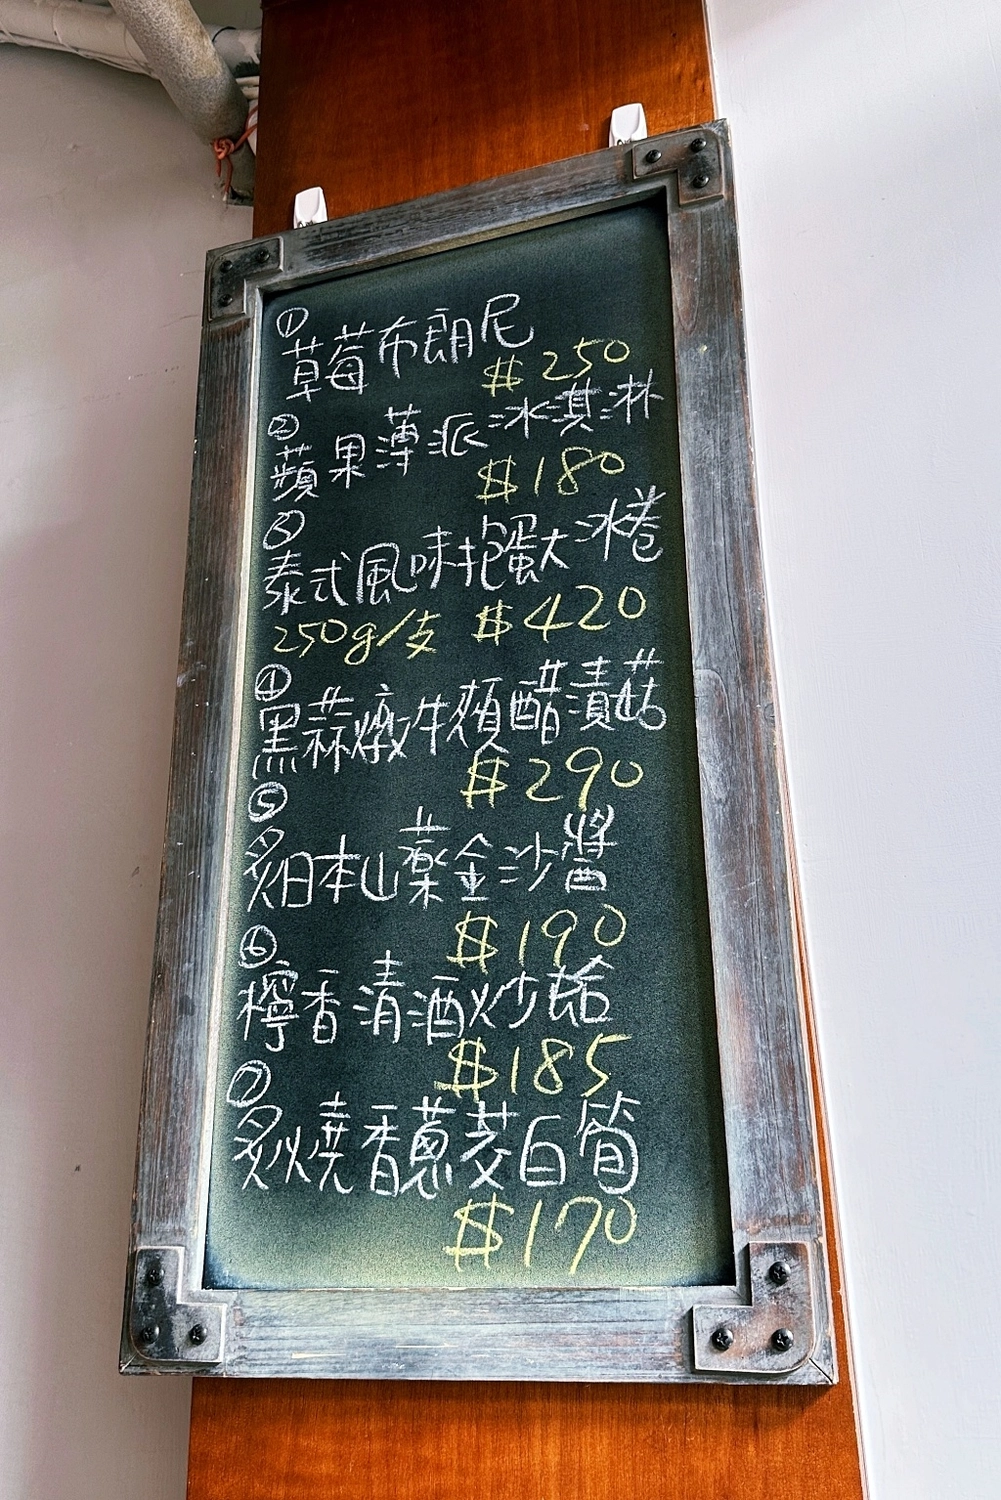 ①
草莓布朗尼
$250
②
蘋果薄派冰淇淋
$180
③
泰式風味抱蛋大冰卷
250g/支 $420
④
黑蒜燉牛頰醋漬菇
$290
⑤
炙日本山藥金沙醬
$190
⑥
檸香清酒炒蛤
$185
⑦
炙燒香蔥茭白筍
$170